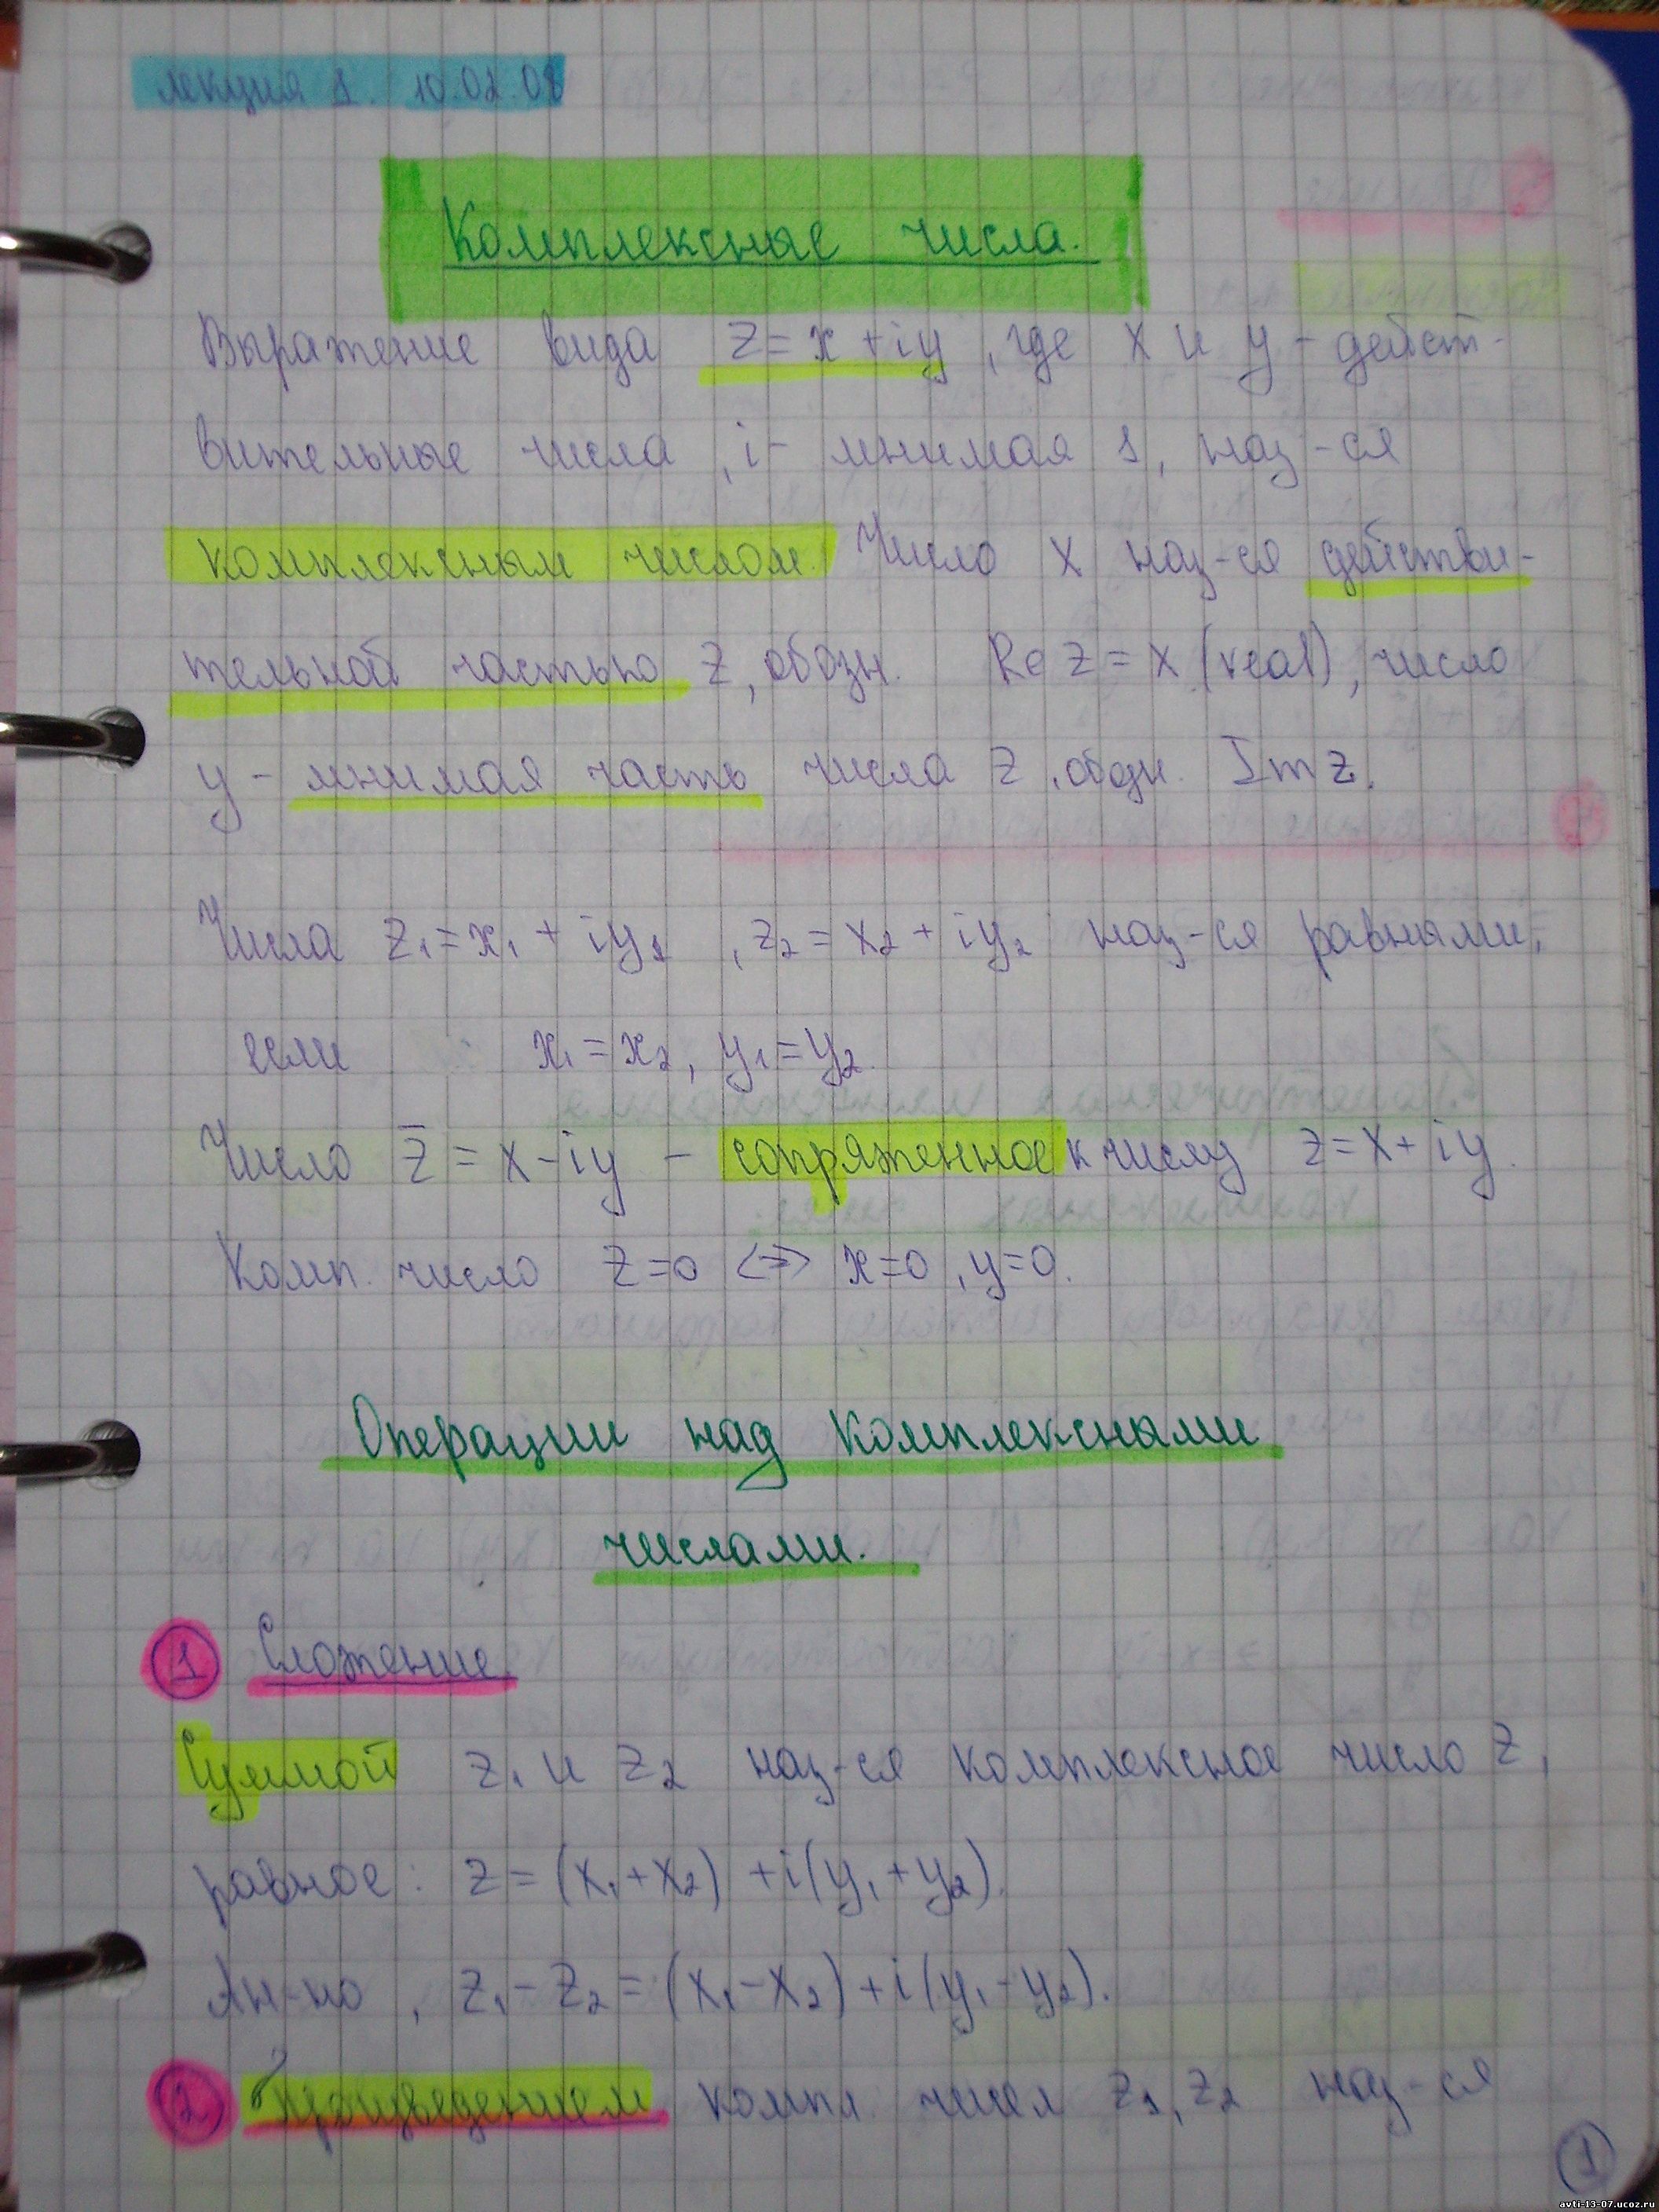 лекция 1. 10.02.08
Комплексные числа.
Выражение вида z = x + iy, где x и y - дейст-
вительные числа, i - мнимая 1, наз-ся
комплексным числом. Число x наз-ся действи-
тельной частью z, обозн. Re z = x (real), число
y - мнимая часть числа z, обозн. Im z.
Числа z₁ = x₁ + iy₁, z₂ = x₂ + iy₂ наз-ся равными,
если x₁ = x₂, y₁ = y₂.
Число z̅ = x - iy - сопряженное к числу z = x + iy.
Комп. число z = 0 <=> x = 0, y = 0.
Операции над комплексными
числами.
① Сложение.
Суммой z₁ и z₂ наз-ся комплексное число z,
равное: z = (x₁ + x₂) + i(y₁ + y₂).
Ан-но, z₁ - z₂ = (x₁ - x₂) + i(y₁ - y₂).
② Произведением компл. чисел z₁, z₂ наз-ся
1
avti-13-07.ucoz.ru